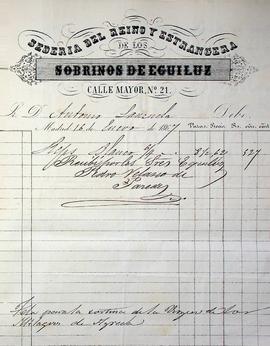 SEDERIA DEL REINO Y ESTRANGERA
DE LOS
SOBRINOS DE EGUILUZ
CALLE MAYOR, Nº 21.
D. Antonio Debe
Madrid 16 de Enero de 1867
Blanco 527
Recibí por los Sres Eguiluz
Pedro Velasco de
Tela para la cortina de la Virgen de los
Milagros de Agreda